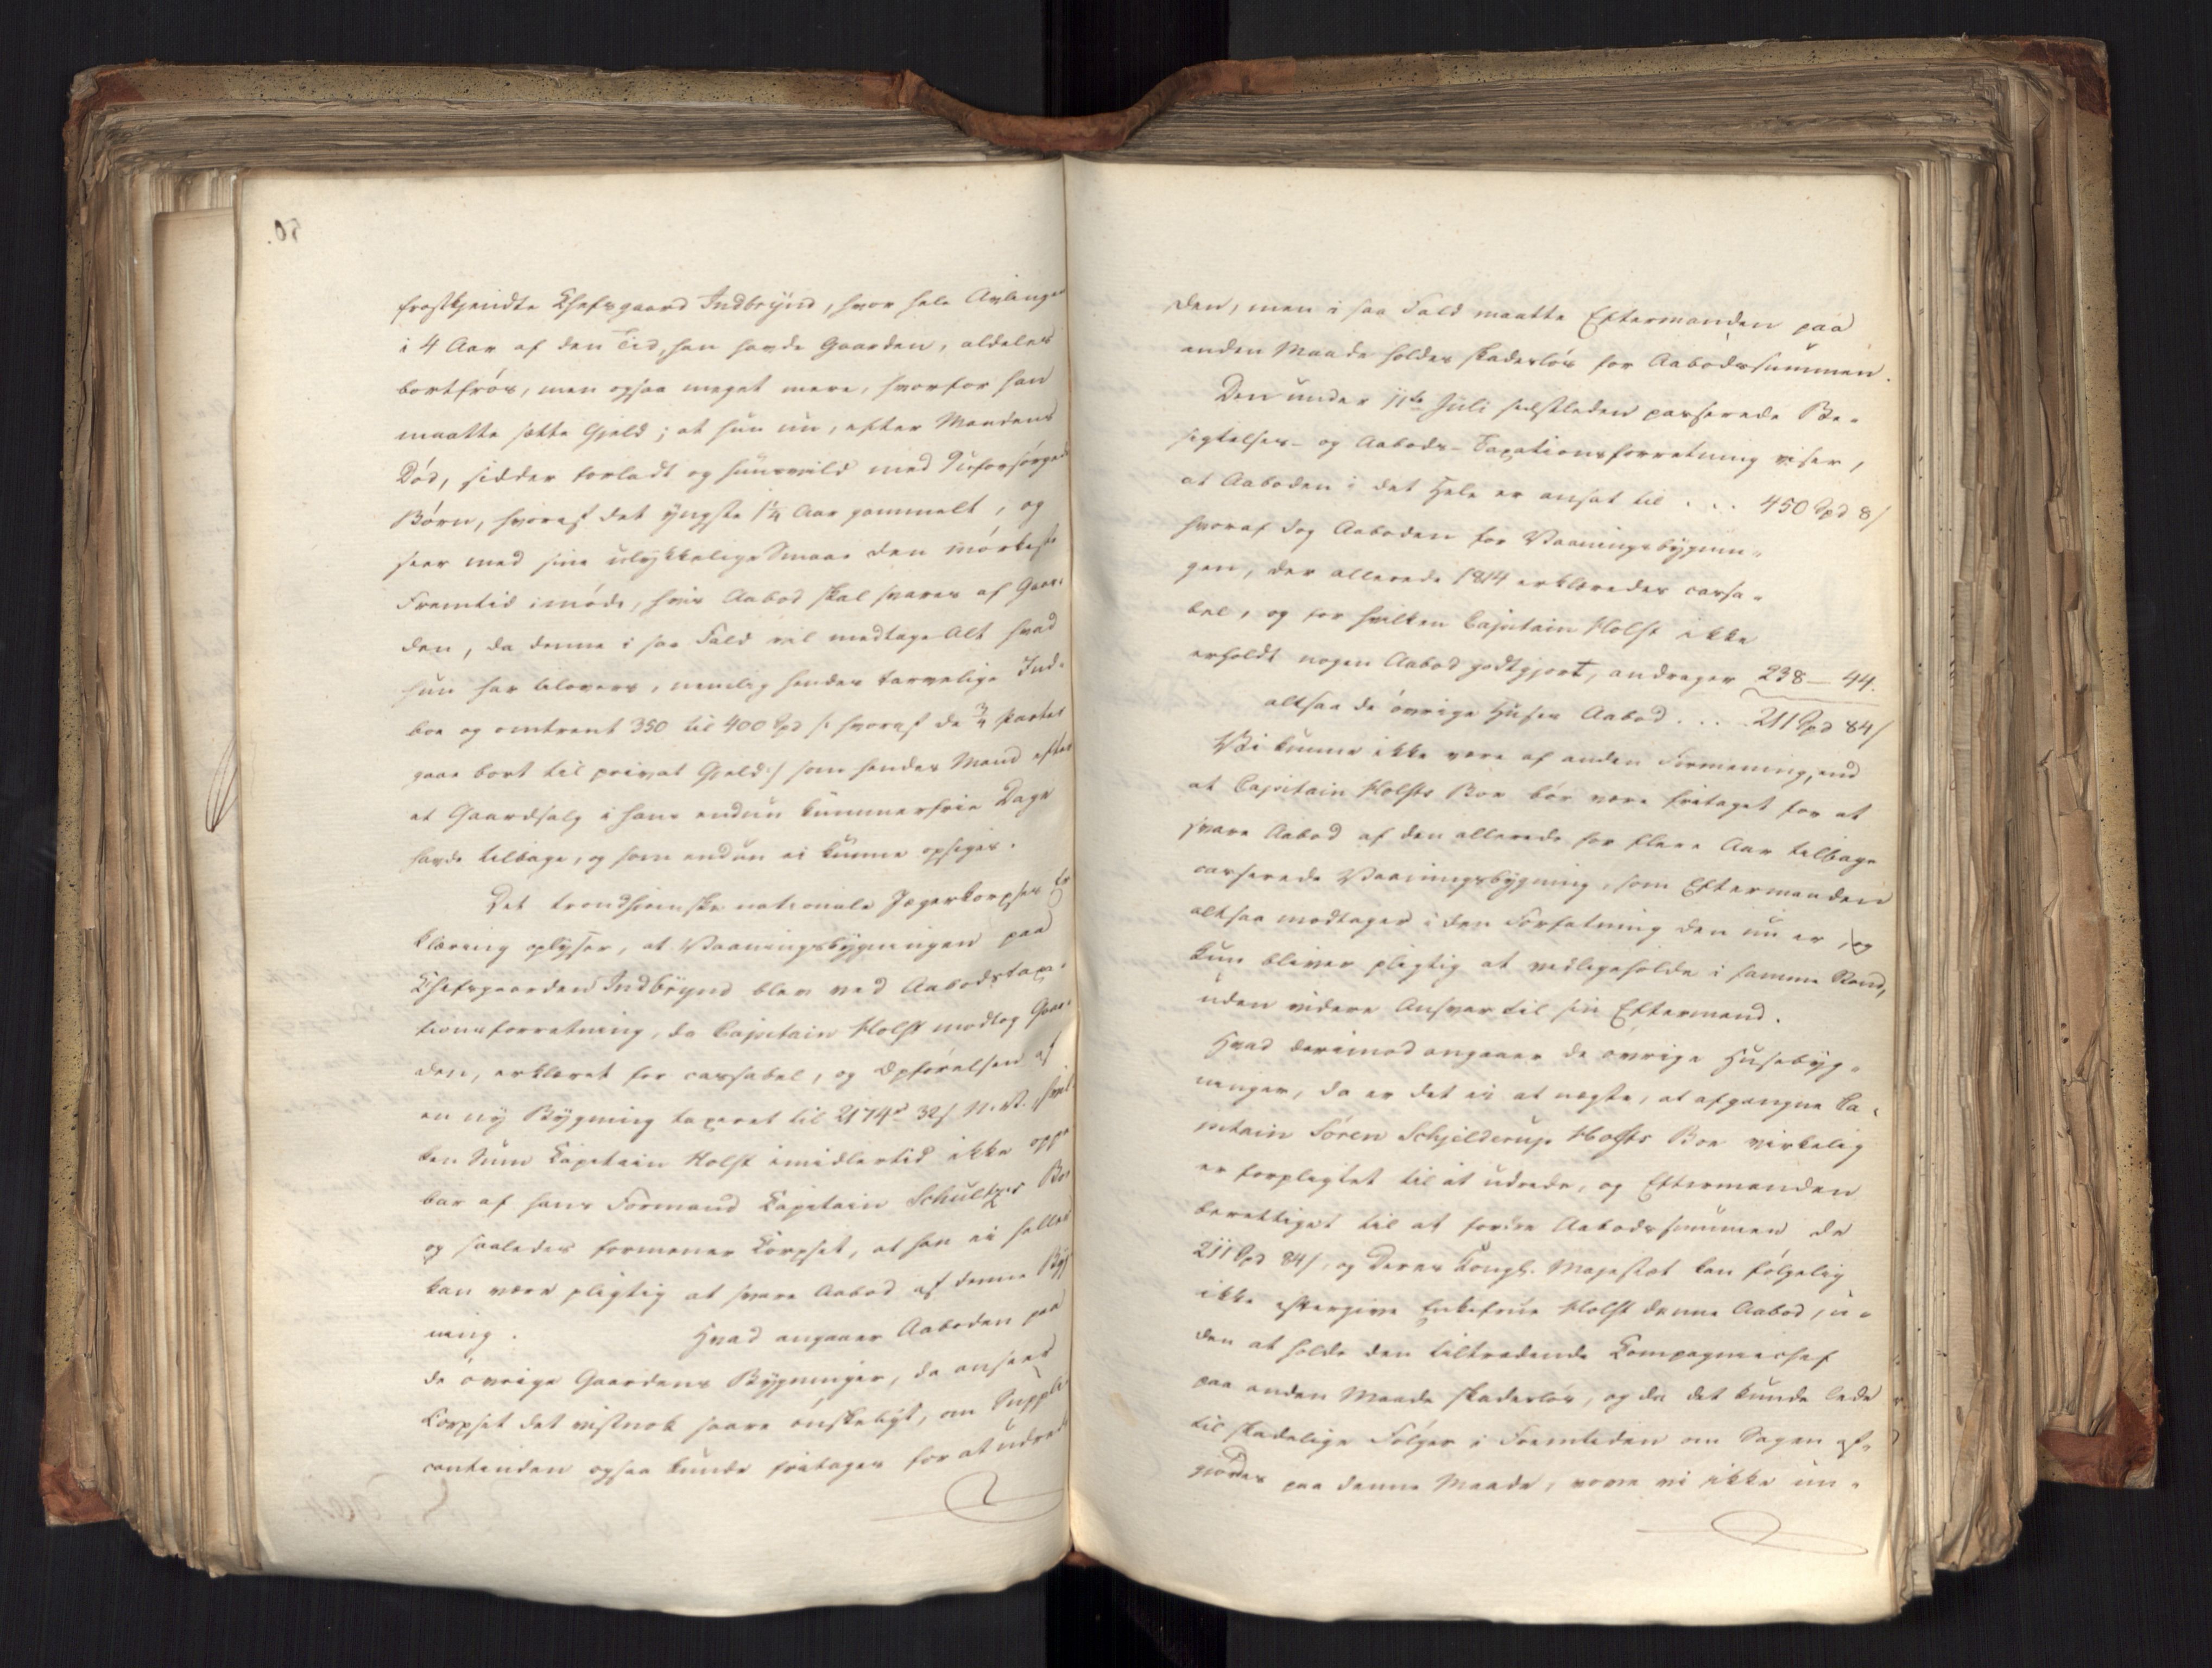 frostkjendte Chefsgaard Indbrynd, hvor hele Avlingen
i 4 Aar af den Tid, han havde Gaarden, aldeles
bortfrös, men ogsaa meget mere, hvorfor han
maatte sætte Gjeld; at hun nu, efter Mandens
Död, sidder forladt og huusvild med uforsörgede
Börn, hvoraf det yngste 1¼ Aar gammelt, og
seer med sine ulykkelige Smaae den mörkeste
Fremtid imöde, hvis Aabod skal svares af Gaar-
den, da denne i saa Fald vil medtage Alt hvad
hun har tilovers, nemlig hendes tarvelige Ind-
boe og omtrent 350 til 400 Spd /: hvoraf de ¾ Parter
gaae bort til privat Gjeld :/ som hendes Mand efter
et Gaardsalg i hans endnu kummerfrie Dage
havde tilbage, og som endnu ei kunne opsiges.
Det trondhjemske nationale Jægerkorpses Er-
klæring oplyser, at Vaaningsbygningen paa
Chefsgaarden Indbrynd blev ved Aabodstaxa-
tionsforretning, da Capitain Holst modtog Gaar-
den, erklæret for cassabel, og Opförelsen af
en ny Bygning taxeret til 2174 32 s N.V. hvil-
ken Sum Capitain Holst imidlertid ikke oppe-
bar af hans Formand Capitain Schultzes Boe
og saaledes formener Corpset, at han ei heller
kan være pligtig at svare Aabod af denne Byg-
ning. Hvad angaaer Aaboden paa
de övrige Gaardens Bygninger, da anseer
Corpset det vistnok saare önskeligt, om Suppli-
cantinden ogsaa kunde fritages for at udrede
den, men i saa Fald maatte Eftermanden paa
anden Maade holdes skadeslös for Aabodssummen.
Den under 11te Juli sidstleden passerede Be-
sigtelses- og Aabods-Taxationsforretning viser,
at Aaboden i det Hele er ansat til . . . 450 Spd 8 s
hvoraf dog Aaboden for Vaaningsbygnin-
gen, der allerede 1814 erklæredes cassa-
bel, og for hvilken Capitain Holst ikke
erholdt nogen Aabod godtgjort, andrager 238 — 44.
altsaa de övrige Huses Aabod . . . . 211 Spd 84 s
Vi kunne ikke være af anden Formening, end
at Capitain Holsts Boe bör være fritaget for at
svare Aabod af den allerede for flere Aar tilbage
casserede Vaaningsbygning, som Eftermanden
altsaa modtager i den Forfatning den nu er, og
kun bliver pligtig at vedligeholde i samme Stand,
uden videre Ansvar til sin Eftermand.
Hvad derimod angaaer de övrige Huusebyg-
ninger, da er det ei at negte, at afgangne Ca-
pitain Sören Schjelderup Holsts Boe virkelig
er forpligtet til at udrede, og Eftermanden
berettiget til at fordre Aabodssummen de
211 Spd 84 s, og Deres Kongl. Majestæt kan fölgelig
ikke eftergive Enkefrue Holst denne Aabod, u-
den at holde den tiltrædende Compagniechef
paa anden Maade skadeslös, og da det kunde lede
til skadelige Fölger i Fremtiden om Sagen af-
gjordes paa denne Maade, vove vi ikke un-